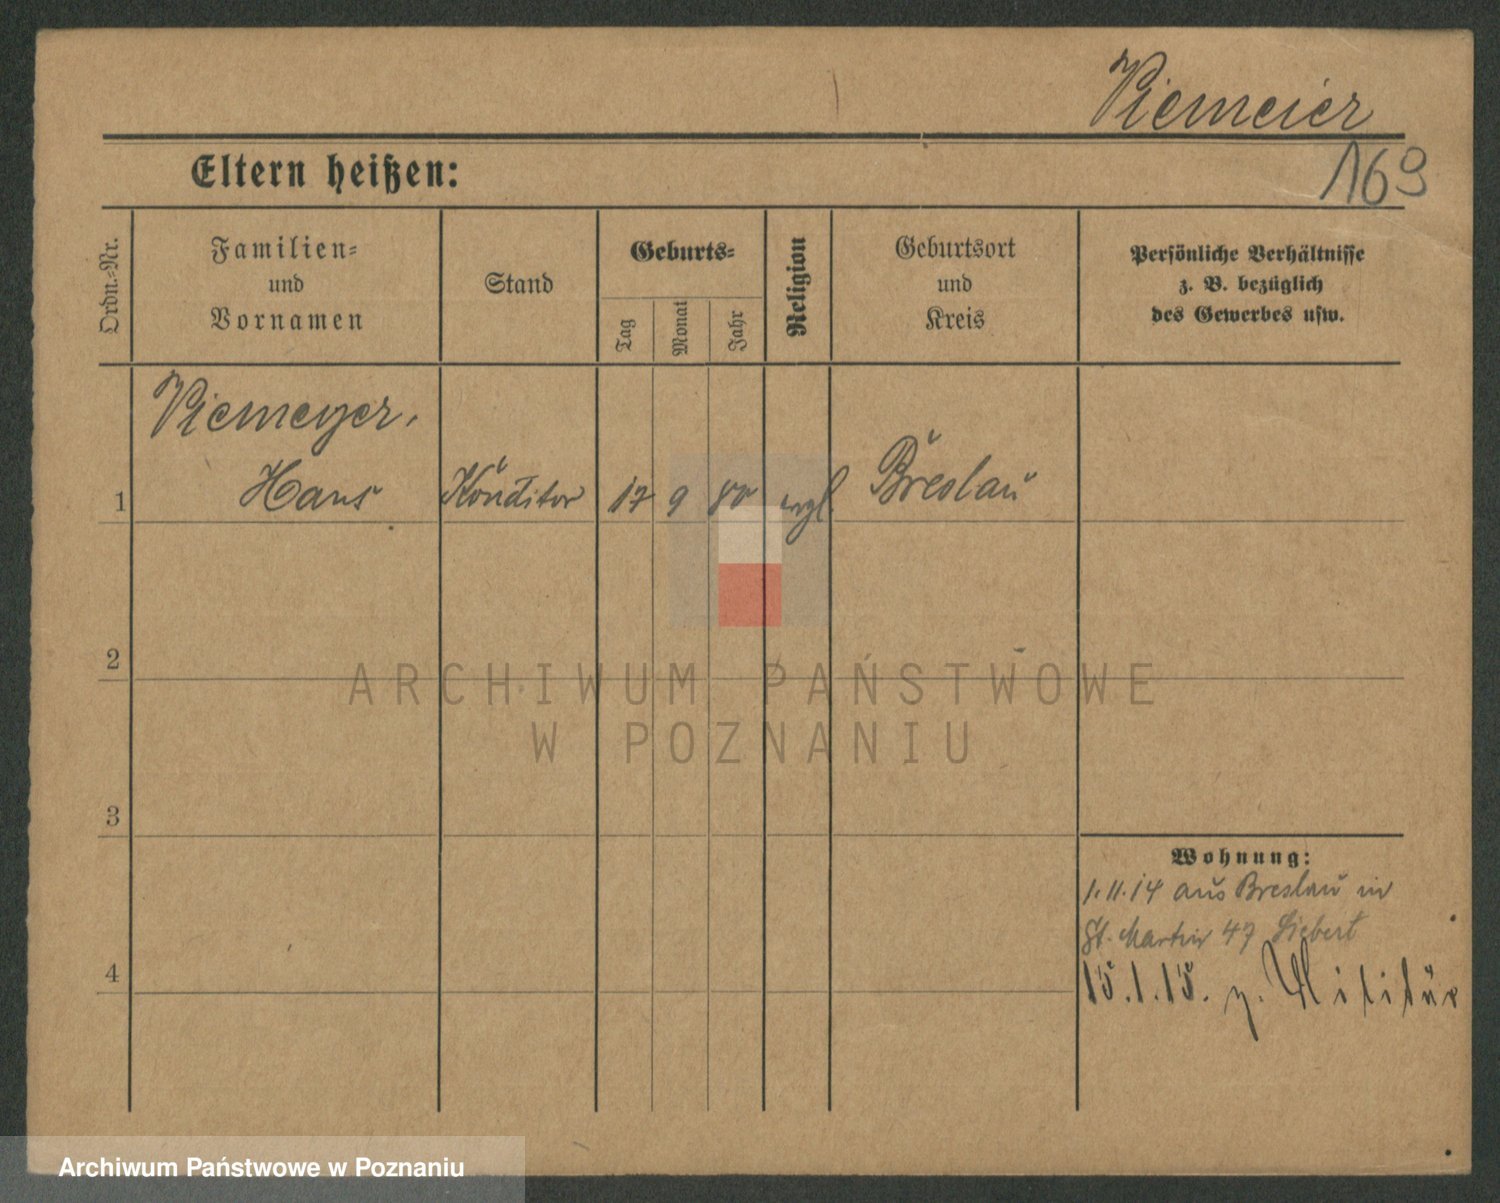 Viemeier
169
Eltern heißen:
Ordn.-Nr.
Familien-
und
Vornamen
Stand
Geburts-
Tag
Monat
Jahr
Religion
Geburtsort
und
Kreis
Persönliche Verhältnisse
z. B. bezüglich
des Gewerbes usw.
Viemeyer.
1 Hans Konditor 17 9 80 evgl. Breslau
2
3
4
Wohnung:
1.11.14 aus Breslau in
St. Martin 47 Siebert
15.1.15. z. Militär
ARCHIWUM PAŃSTWOWE
W POZNANIU
Archiwum Państwowe w Poznaniu